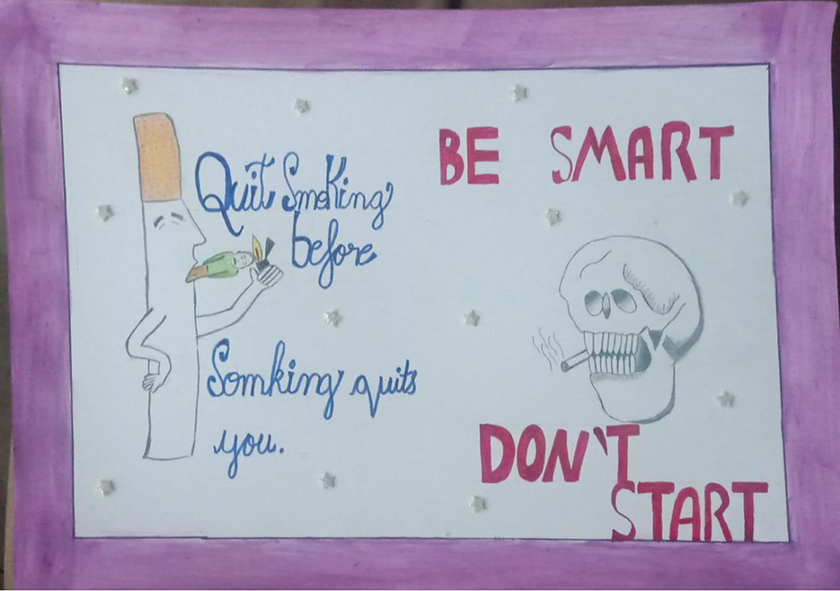 Quit Smoking
before
Somking quits
you.
BE SMART
DON'T
START